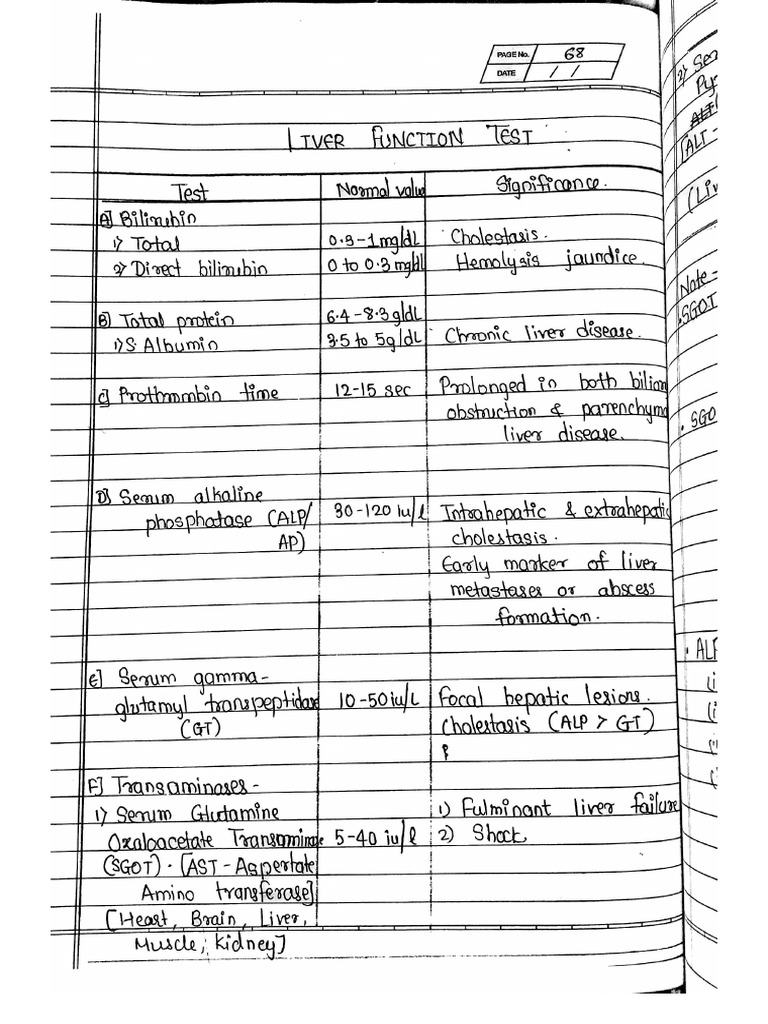 PAGE No. 68
DATE / /
LIVER FUNCTION TEST
Test Normal value Significance.
A] Bilirubin
1) Total 0.3-1mg/dL Cholestasis.
2) Direct bilirubin 0 to 0.3 mg/dl Hemolysis jaundice.
B) Total protein 6.4-8.3g/dL
1) S. Albumin 3.5 to 5g/dL Chronic liver disease.
C] Prothrombin time 12-15 sec Prolonged in both
obstruction & 
liver disease.
D] Serum alkaline
phosphatase (ALP/ 30-120 iu/l Intrahepatic & extrahepatic
AP) cholestasis.
Early marker of liver
metastases or abscess
formation.
E] Serum gamma-
glutamyl transpeptidase 10-50iu/L Focal hepatic lesions.
(GT) Cholestasis (ALP > GT)
F] Transaminases-
1) Serum Glutamine 1) Fulminant liver failure
Oxaloacetate 5-40 iu/l 2) Shock
(SGOT). [AST-Aspertate
Amino transferase]
[Heart, Brain, Liver,
Muscle, Kidney]
2)
[ALT-
Note-
.SGOT